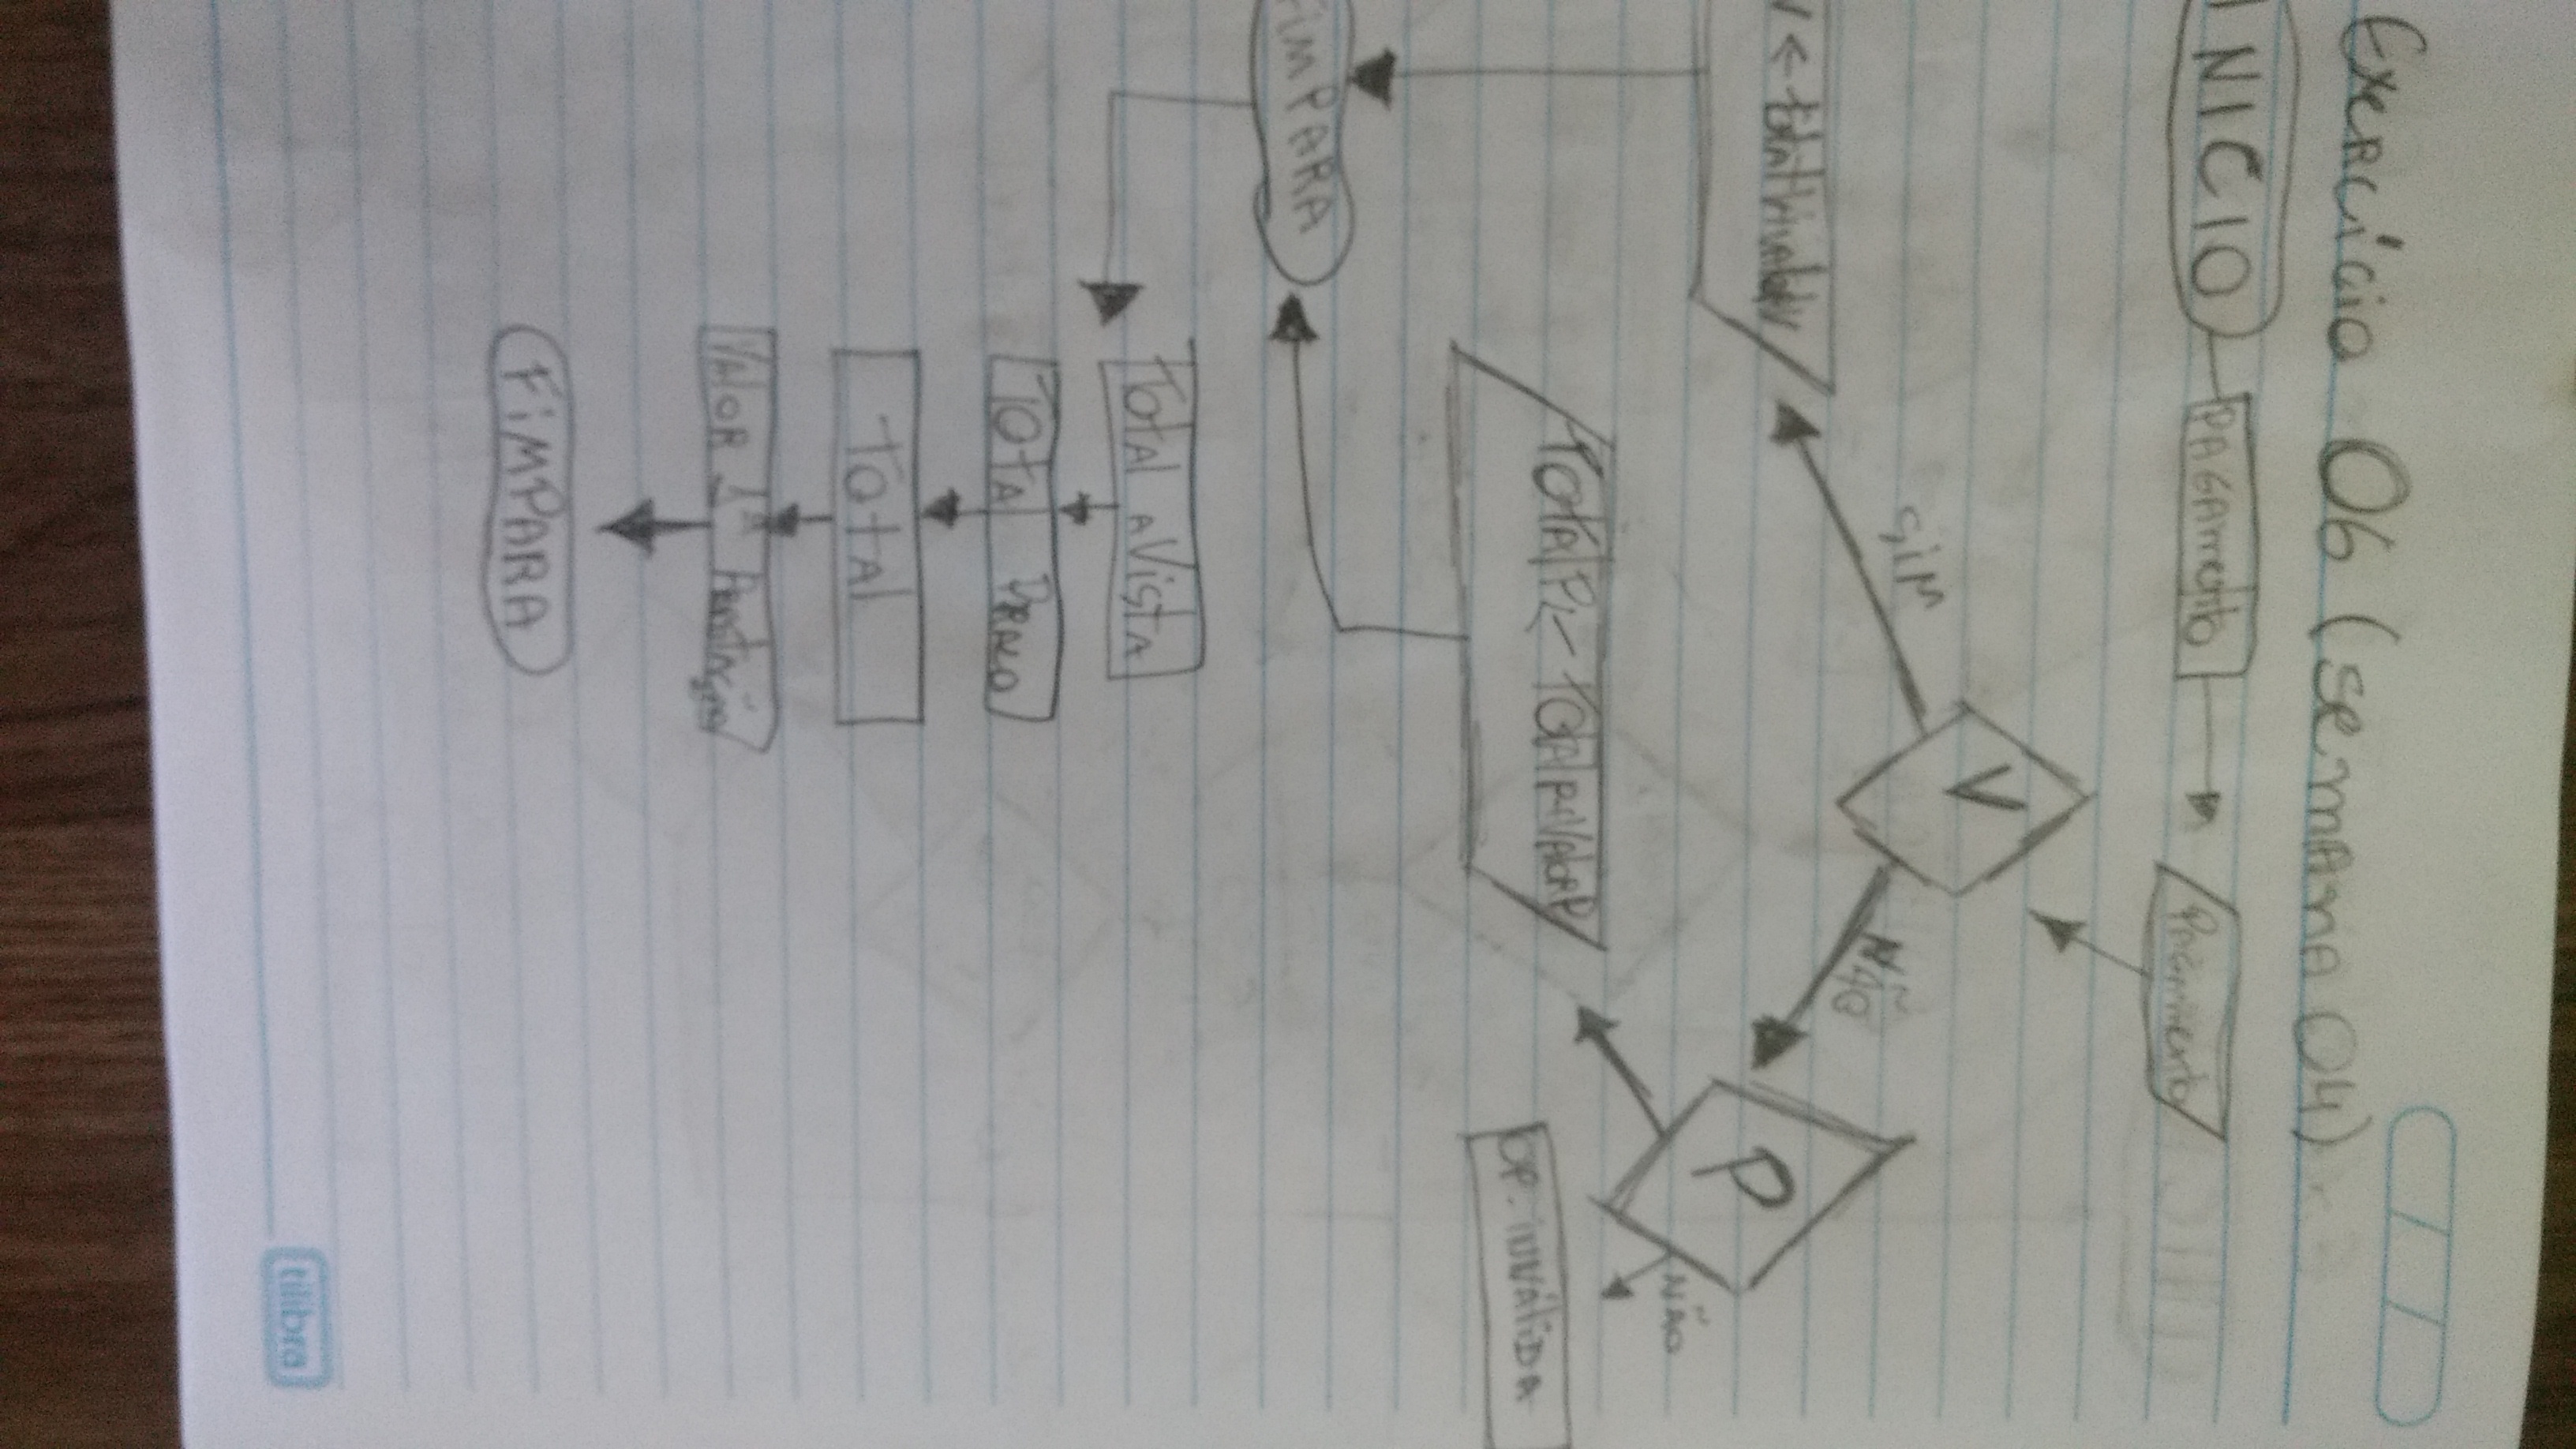 Exercício 06 (semana 04)
INICIO
PAGAmento
Pagamento
V
SiM
NÃO
P
NÃO
V ← totalV+ValorV
TOTAlP ← TOTAlP+VAlorP
OP. iNVÁliDA
FiMPARA
TOtAl AVistA
TOtAl PRAZO
TOtAl
VAlOR 1ª PRestAção
FiMPARA
tilibra